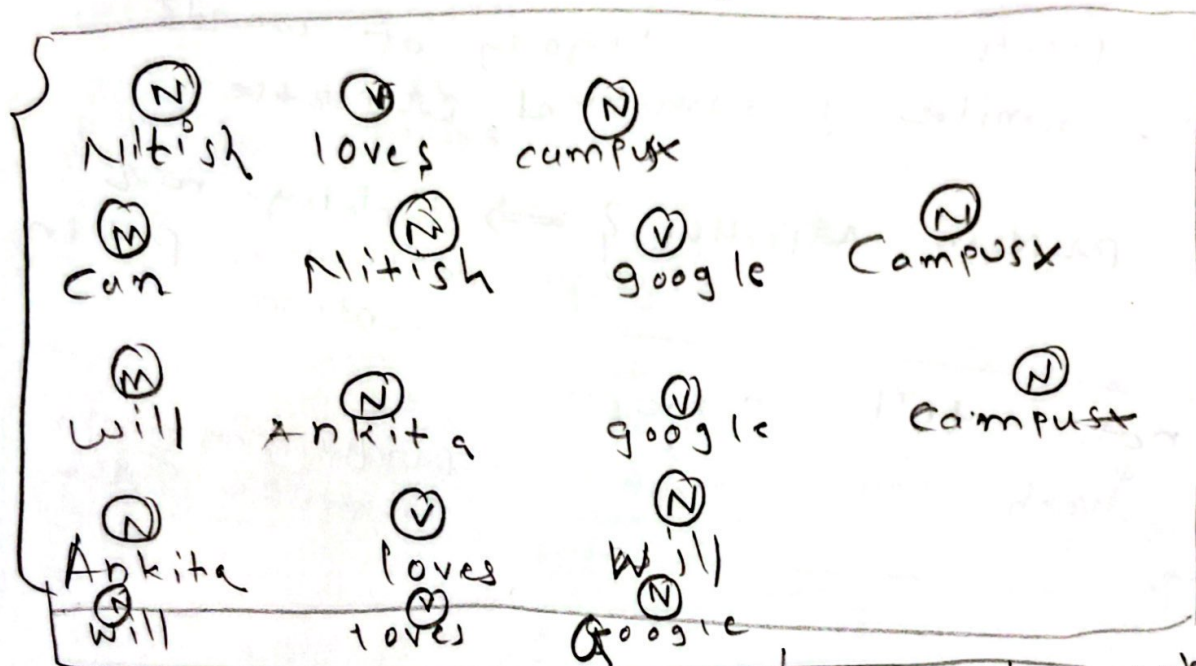 N V N
Nitish loves campusx
M N V N
Can Nitish google Campusx
M N V N
will Ankita google campusx
N V N
Ankita loves Will
N V N
Will loves Google